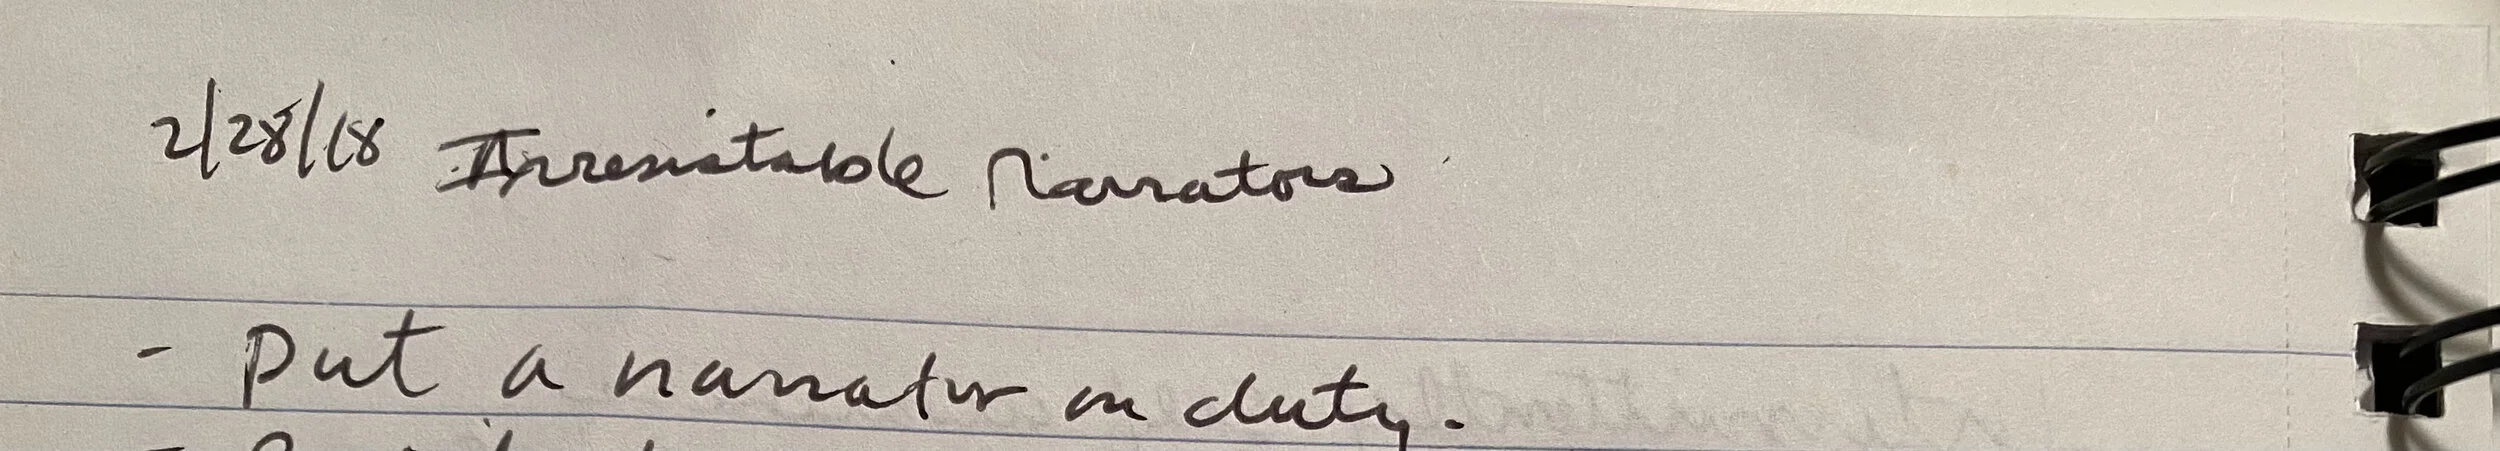 2/28/18 Irresistable Narrators
- Put a narrator on duty.